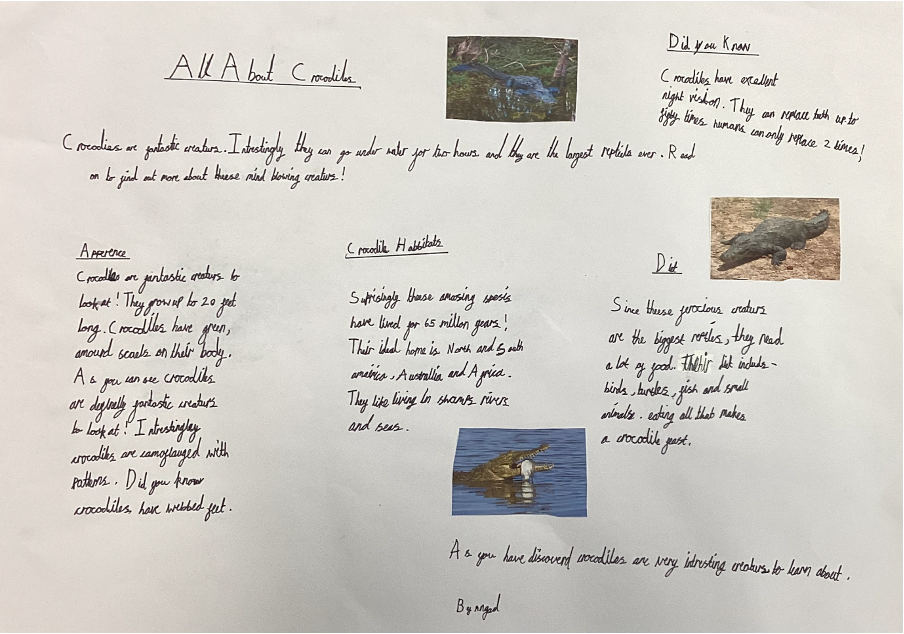 All About Crocodiles
Did you Know
Crocodiles have excellent
night vision. They can replace teeth up to
fifty times humans can only replace 2 times!
Crocodies are fantastic creaturs. Intrestingly they can go under water for two hours and they are the largest reptiles ever. Read
on to find out more about theese mind blowing creaturs!
Apperence
Crocodiles are fantastic creaturs to
look at! They grow up to 20 feet
long. Crocodiles have green,
amourd scaels on their body.
As you can see crocodiles
are deginelly fantastic creaturs
to look at! Intrestinglay
crocodiles are camoflauged with
patterns. Did you know
crocodiles, have webbed feet.
Crocodile Habbitats
Suprisingly theese amazing spesis
have lived for 65 millon years!
Their ideal home is North and South
ameirica, Austrailia and Africa.
They like living In swamps rivers
and seas.
Diet
Since theese ferocious creaturs
are the biggest reptiles, they need
a lot of food. Their diet includes-
birds, turtles, fish and small
animalse. eating all that makes
a crocodile feast.
As you have discoverd crocodiles are very intresting creaturs to learn about.
By